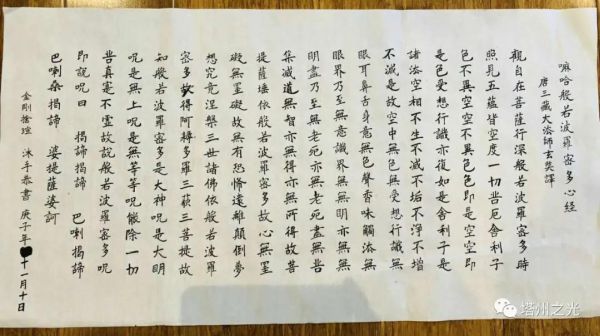 嘛哈般若波羅蜜多心經
唐三藏大法師玄奘譯
觀自在菩薩行深般若波羅蜜多時
照見五蘊皆空度一切苦厄舍利子
色不異空空不異色色即是空空即
是色受想行識亦復如是舍利子是
諸法空相不生不滅不垢不淨不增
不減是故空中無色無受想行識無
眼耳鼻舌身意無色聲香味觸法無
眼界乃至無意識界無無明亦無無
明盡乃至無老死亦無老死盡無苦
集滅道無智亦無得亦無所得故菩
提薩埵依般若波羅蜜多故心無罣
礙無罣礙故無有恐怖遠離顛倒夢
想究竟涅槃三世諸佛依般若波羅
蜜多故得阿耨多羅三藐三菩提故
知般若波羅蜜多是大神咒是大明
咒是無上咒是無等等咒能除一切
苦真實不虛故說般若波羅蜜多咒
即說咒曰 揭諦揭諦 巴喇揭諦
巴喇桑揭諦 婆提薩婆訶
金剛 沐手恭書 庚子年十一月十日
塔州之光